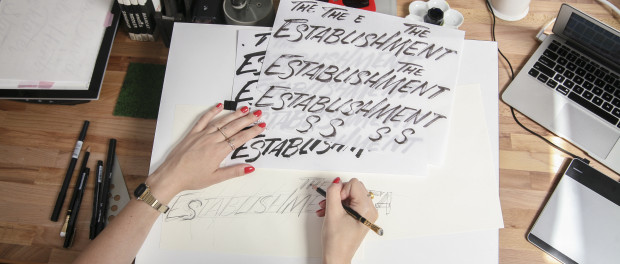 THE. THE E THE
ESTABLISHMENT
THE
ESTABLISHMENT
ESTABLISHMENT
S S S S
ESTABLISHM
THE
ESTABLISHME